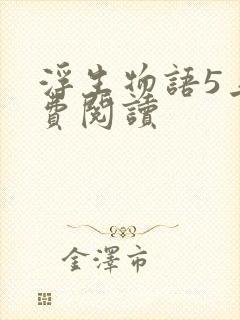 浮生物語5
費閱讀
金澤市